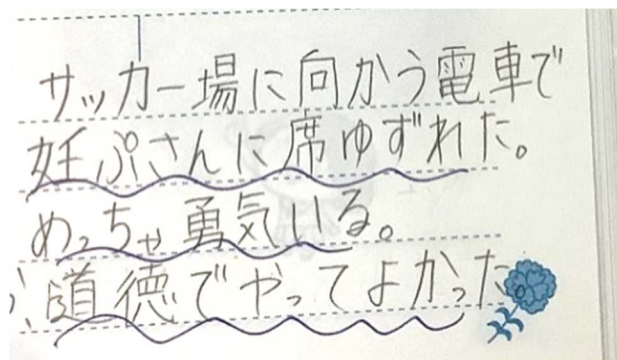 サッカー場に向かう電車で
妊ぷさんに席ゆずれた。
めっちゃ勇気いる。
道徳でやってよかった。